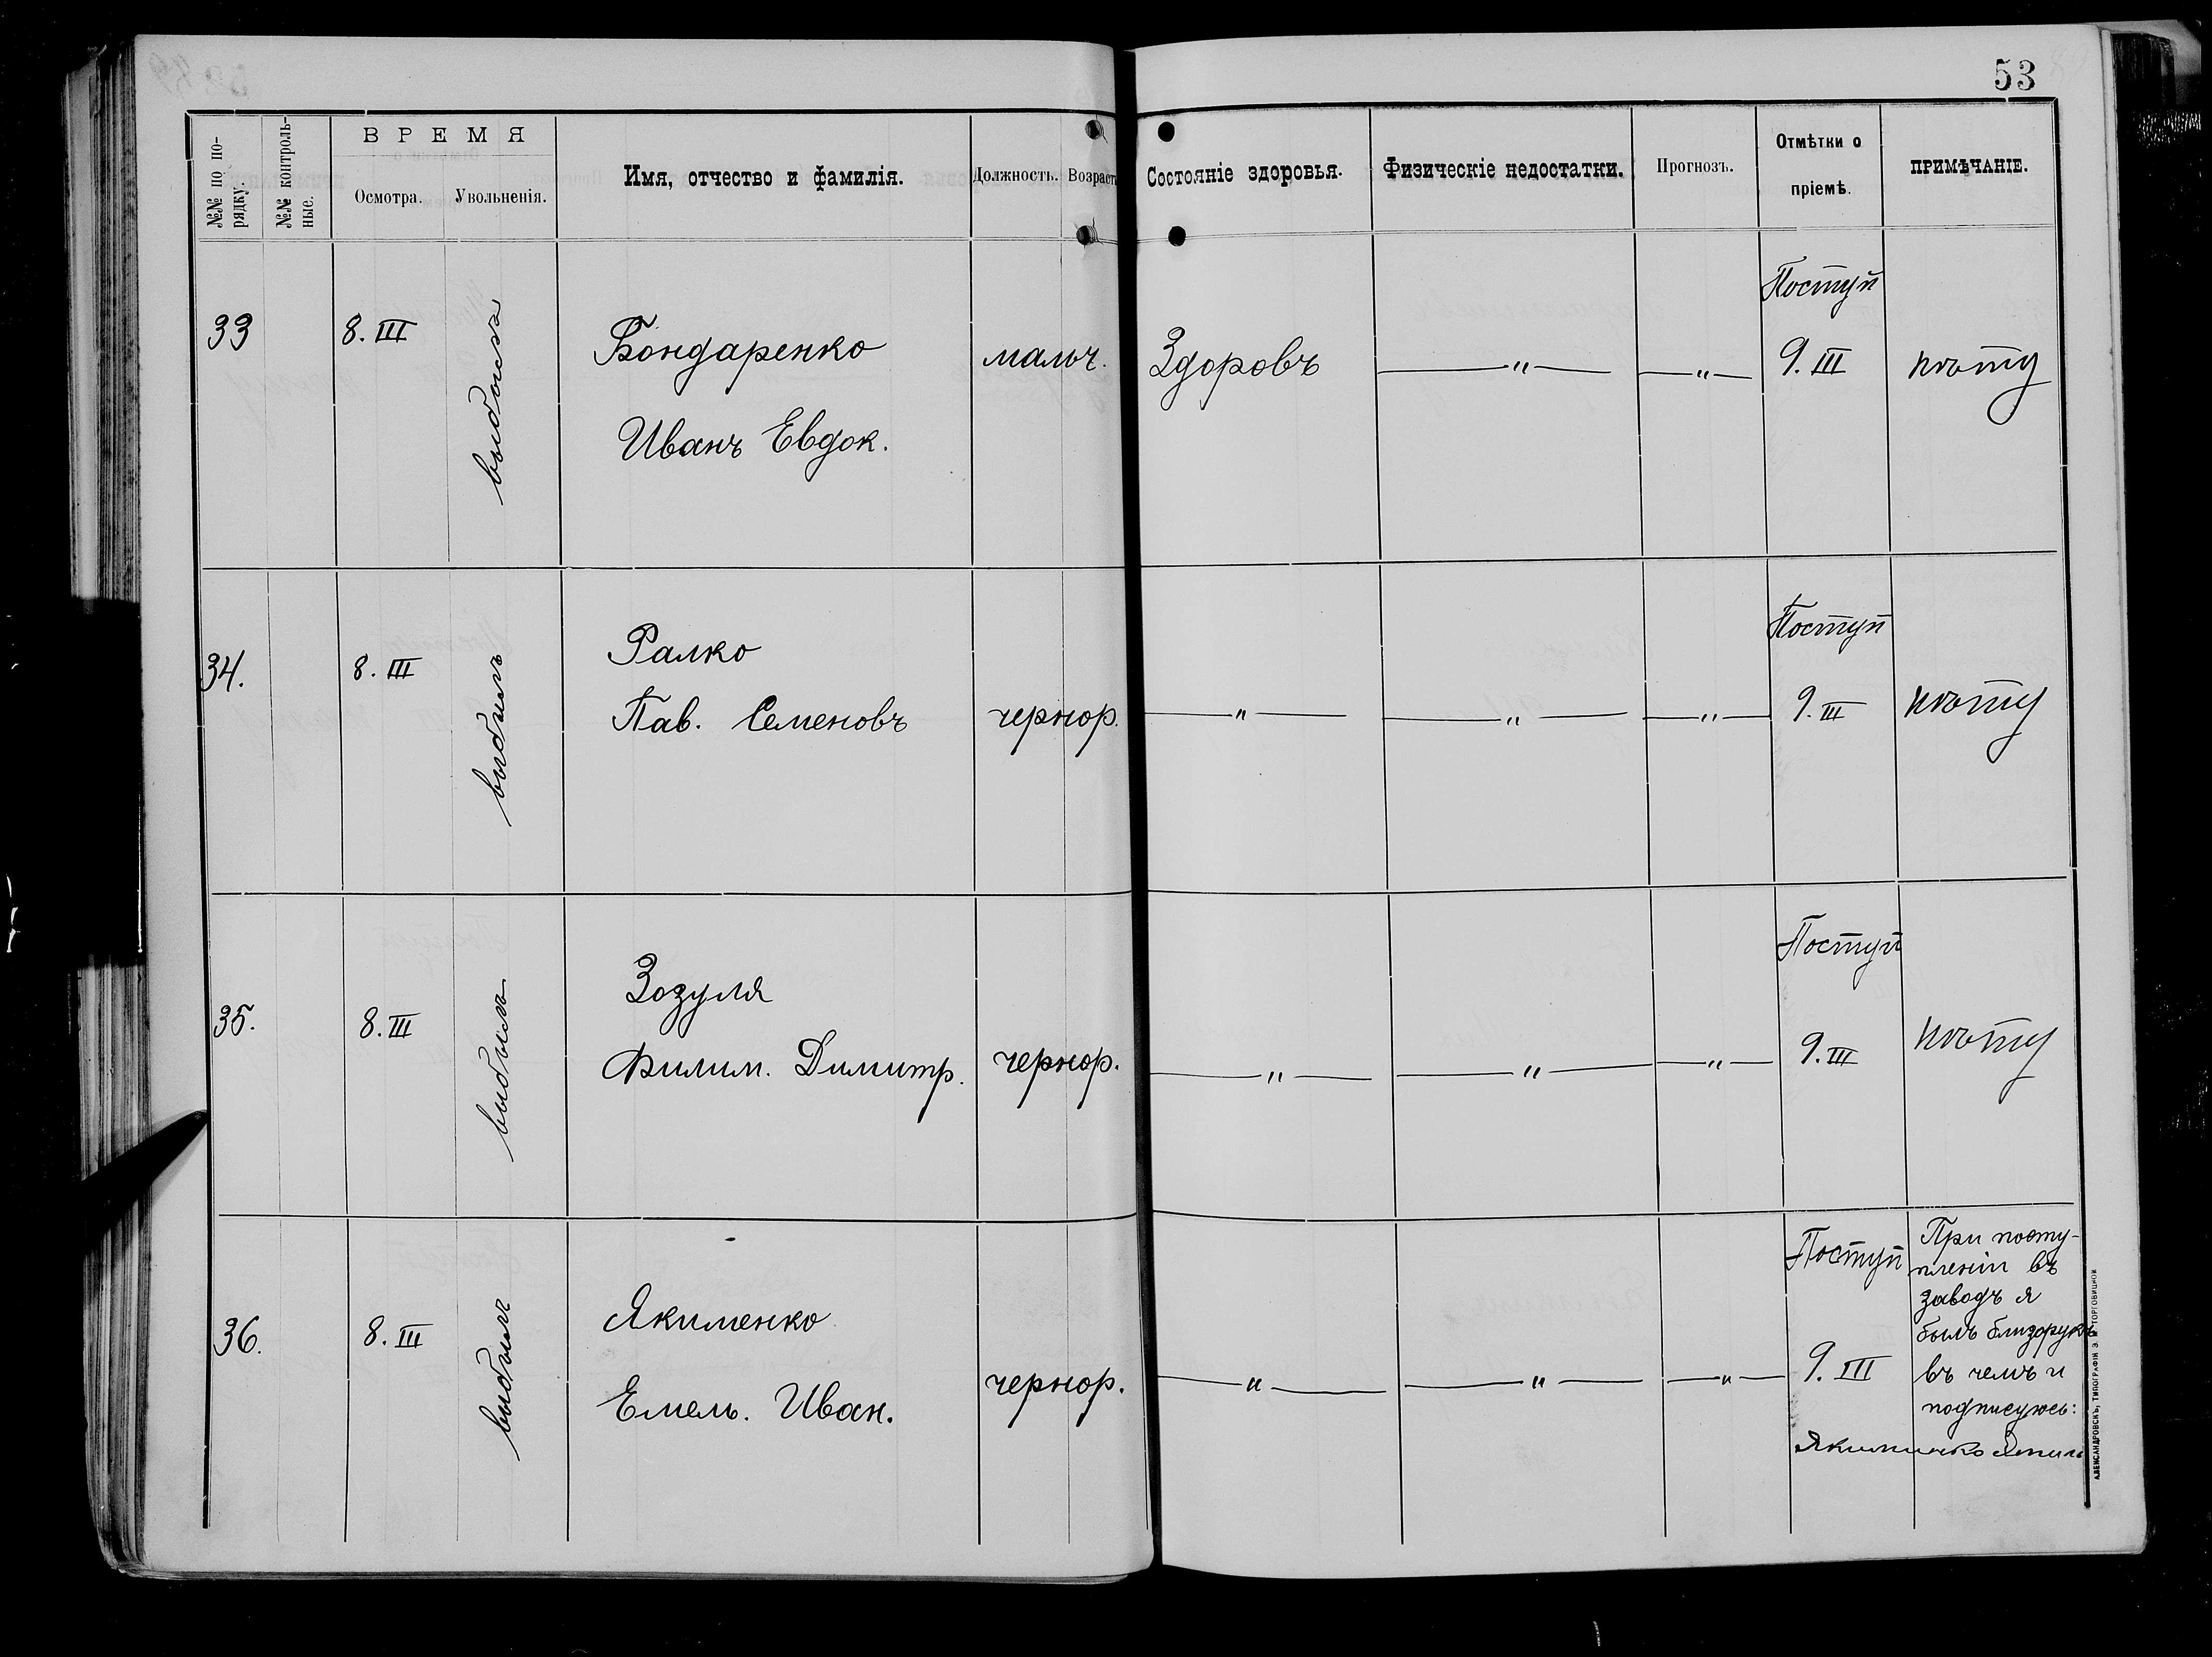 53
№№ по по-
рядку.
№№ контроль-
ные.
ВРЕМЯ
Осмотра.
Увольненія.
Имя, отчество и фамилія.
Должность.
Возраст
Состояніе здоровья.
Физическіе недостатки.
Прогнозъ.
Отмѣтки о
пріемѣ.
ПРИМѢЧАНІЕ.
33 8.III выбылъ
Бондаренко
Иванъ Евдок.
мальч.
Здоровъ
—"— —"—
Поступ
9.III
34. 8.III выбылъ
Ралко
Пав. Семеновъ
чернор.
—"— —"— —"—
Поступ
9.III
35. 8.III выбылъ
Зозуля
Филим. Димитр.
чернор.
—"— —"— —"—
Поступ
9.III
36. 8.III выбылъ
Якименко
Емель. Иван.
чернор.
—"— —"— —"—
Поступ
9.III
При посту-
пленіи въ
заводъ я
былъ близорукъ
въ чемъ и
подписуюсь:
АЛЕКСАНДРОВСКЪ, ТИПОГРАФІЯ З. М. ТОРГОВИЦКОЙ